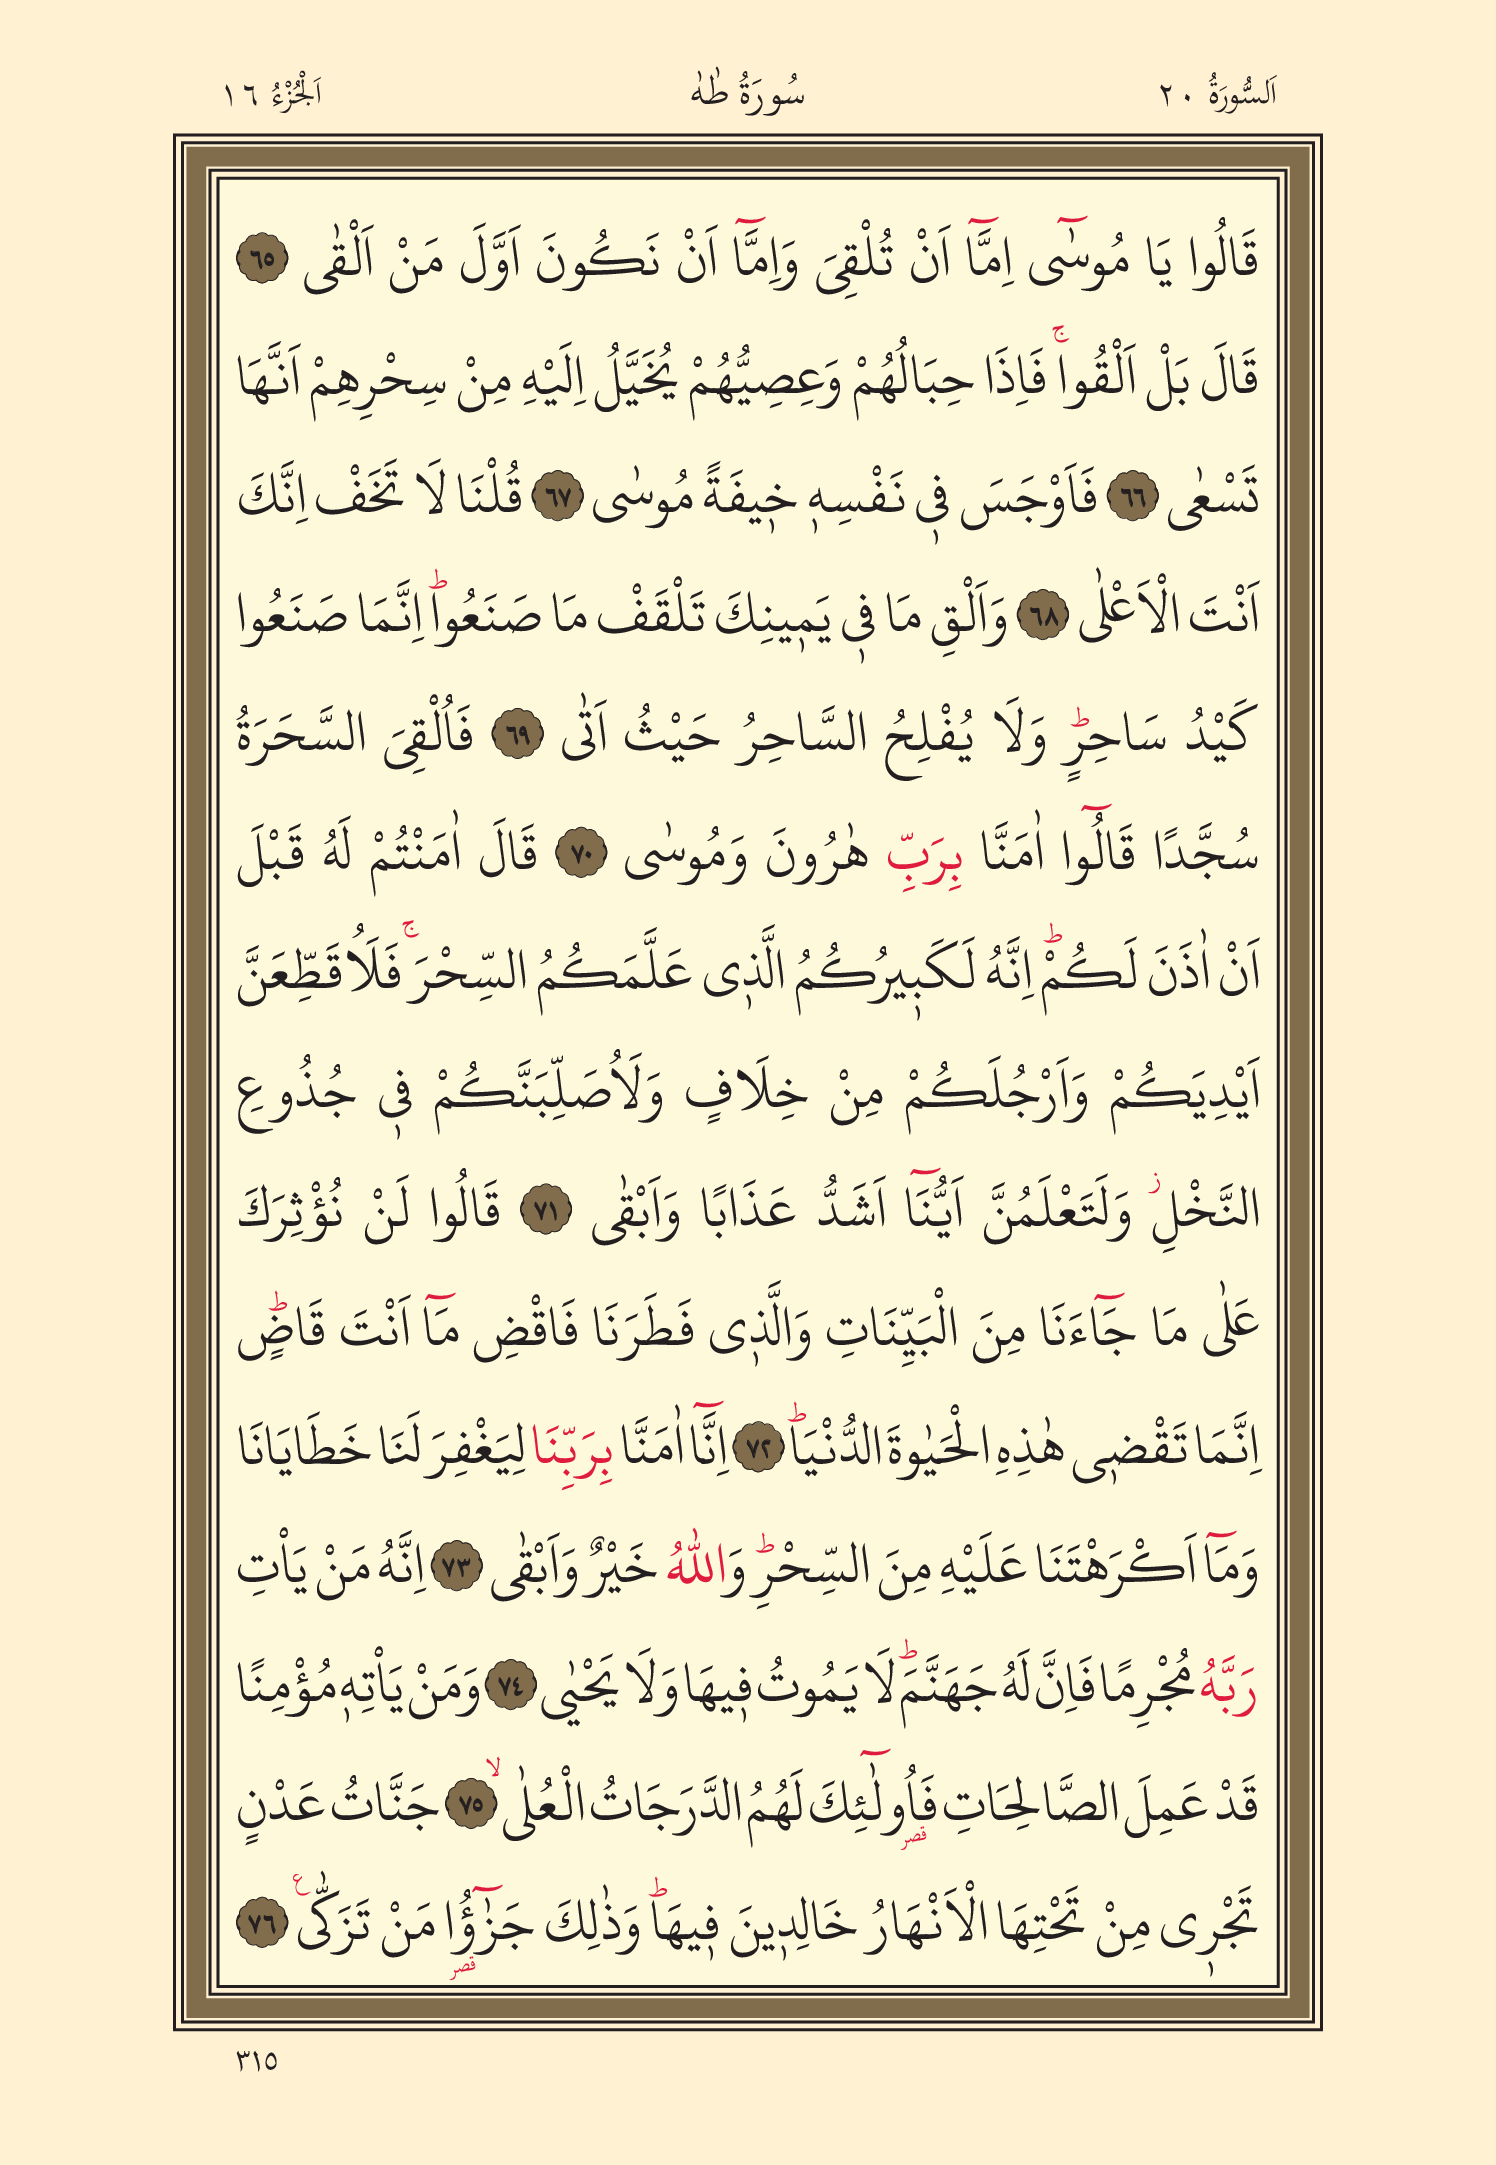 اَلسُّورَةُ ٢٠ سُورَةُ طٰهٰ اَلْجُزْءُ ١٦
قَالُوا يَا مُوسٰٓى اِمَّٓا اَنْ تُلْقِىَ وَاِمَّٓا اَنْ نَكُونَ اَوَّلَ مَنْ اَلْقٰى ٦٥
قَالَ بَلْ اَلْقُواۚ فَاِذَا حِبَالُهُمْ وَعِصِيُّهُمْ يُخَيَّلُ اِلَيْهِ مِنْ سِحْرِهِمْ اَنَّهَا
تَسْعٰى ٦٦ فَاَوْجَسَ فٖى نَفْسِهٖ خٖيفَةً مُوسٰى ٦٧ قُلْنَا لَا تَخَفْ اِنَّكَ
اَنْتَ الْاَعْلٰى ٦٨ وَاَلْقِ مَا فٖى يَمٖينِكَ تَلْقَفْ مَا صَنَعُواؕ اِنَّمَا صَنَعُوا
كَيْدُ سَاحِرٍؕ وَلَا يُفْلِحُ السَّاحِرُ حَيْثُ اَتٰى ٦٩ فَاُلْقِىَ السَّحَرَةُ
سُجَّدًا قَالُٓوا اٰمَنَّا بِرَبِّ هٰرُونَ وَمُوسٰى ٧٠ قَالَ اٰمَنْتُمْ لَهُ قَبْلَ
اَنْ اٰذَنَ لَكُمْؕ اِنَّهُ لَكَبٖيرُكُمُ الَّذٖى عَلَّمَكُمُ السِّحْرَۚ فَلَاُقَطِّعَنَّ
اَيْدِيَكُمْ وَاَرْجُلَكُمْ مِنْ خِلَافٍ وَلَاُصَلِّبَنَّكُمْ فٖى جُذُوعِ
النَّخْلِؗ وَلَتَعْلَمُنَّ اَيُّنَٓا اَشَدُّ عَذَابًا وَاَبْقٰى ٧١ قَالُوا لَنْ نُؤْثِرَكَ
عَلٰى مَا جَٓاءَنَا مِنَ الْبَيِّنَاتِ وَالَّذٖى فَطَرَنَا فَاقْضِ مَٓا اَنْتَ قَاضٍؕ
اِنَّمَا تَقْضٖى هٰذِهِ الْحَيٰوةَ الدُّنْيَاؕ ٧٢ اِنَّٓا اٰمَنَّا بِرَبِّنَا لِيَغْفِرَ لَنَا خَطَايَانَا
وَمَٓا اَكْرَهْتَنَا عَلَيْهِ مِنَ السِّحْرِؕ وَاللّٰهُ خَيْرٌ وَاَبْقٰى ٧٣ اِنَّهُ مَنْ يَاْتِ
رَبَّهُ مُجْرِمًا فَاِنَّ لَهُ جَهَنَّمَؕ لَا يَمُوتُ فٖيهَا وَلَا يَحْيٰى ٧٤ وَمَنْ يَاْتِهٖ مُؤْمِنًا
قَدْ عَمِلَ الصَّالِحَاتِ فَاُولٰٓئِكَ لَهُمُ الدَّرَجَاتُ الْعُلٰىۙ ٧٥ جَنَّاتُ عَدْنٍ
قصر
تَجْرٖى مِنْ تَحْتِهَا الْاَنْهَارُ خَالِدٖينَ فٖيهَاؕ وَذٰلِكَ جَزٰٓؤُا مَنْ تَزَكّٰى ع ٧٦
قصر
٣١٥